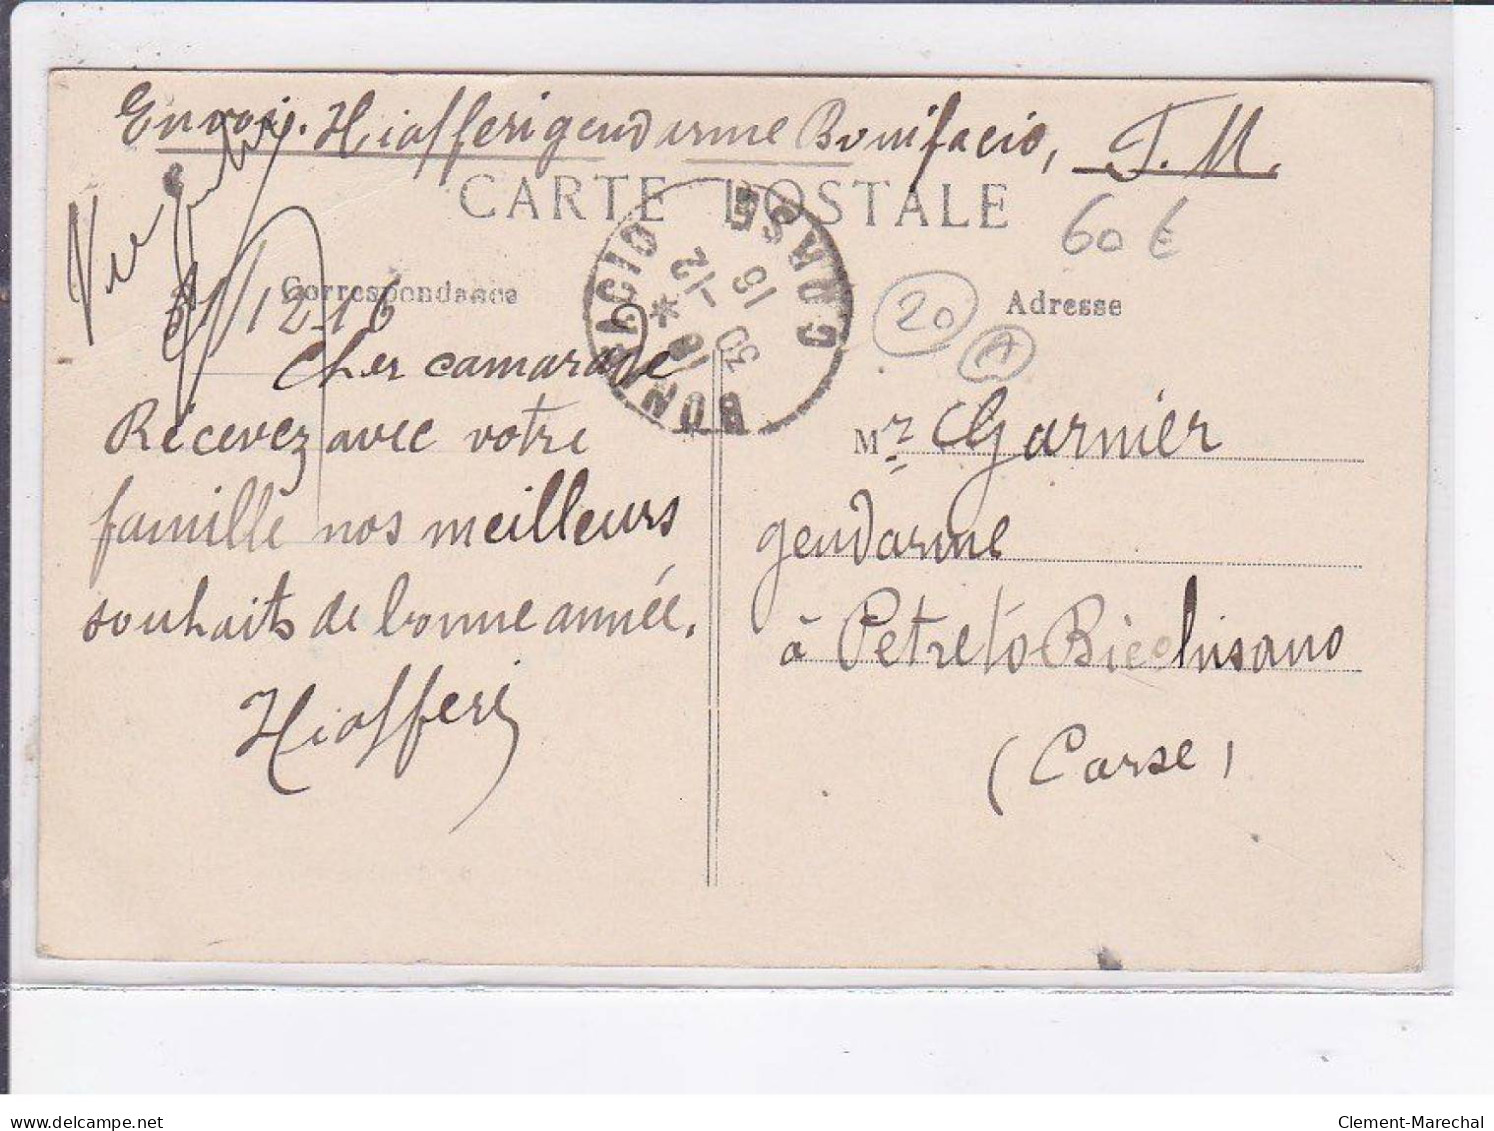 Envoi. Hiafferi gendarme Bonifacio, F.M.
CARTE POSTALE
60 €
Vu
31/12-16
Correspondance
BONIFACIO
CORSE
18 *
30 -12
16
20
A
Adresse
Cher camarade
Recevez avec votre
famille nos meilleurs
souhaits de bonne année.
Hiafferi
Mr Garnier
gendarme
à Petreto Bicchisano
(Corse)
www.delcampe.net
Clement-Marechal